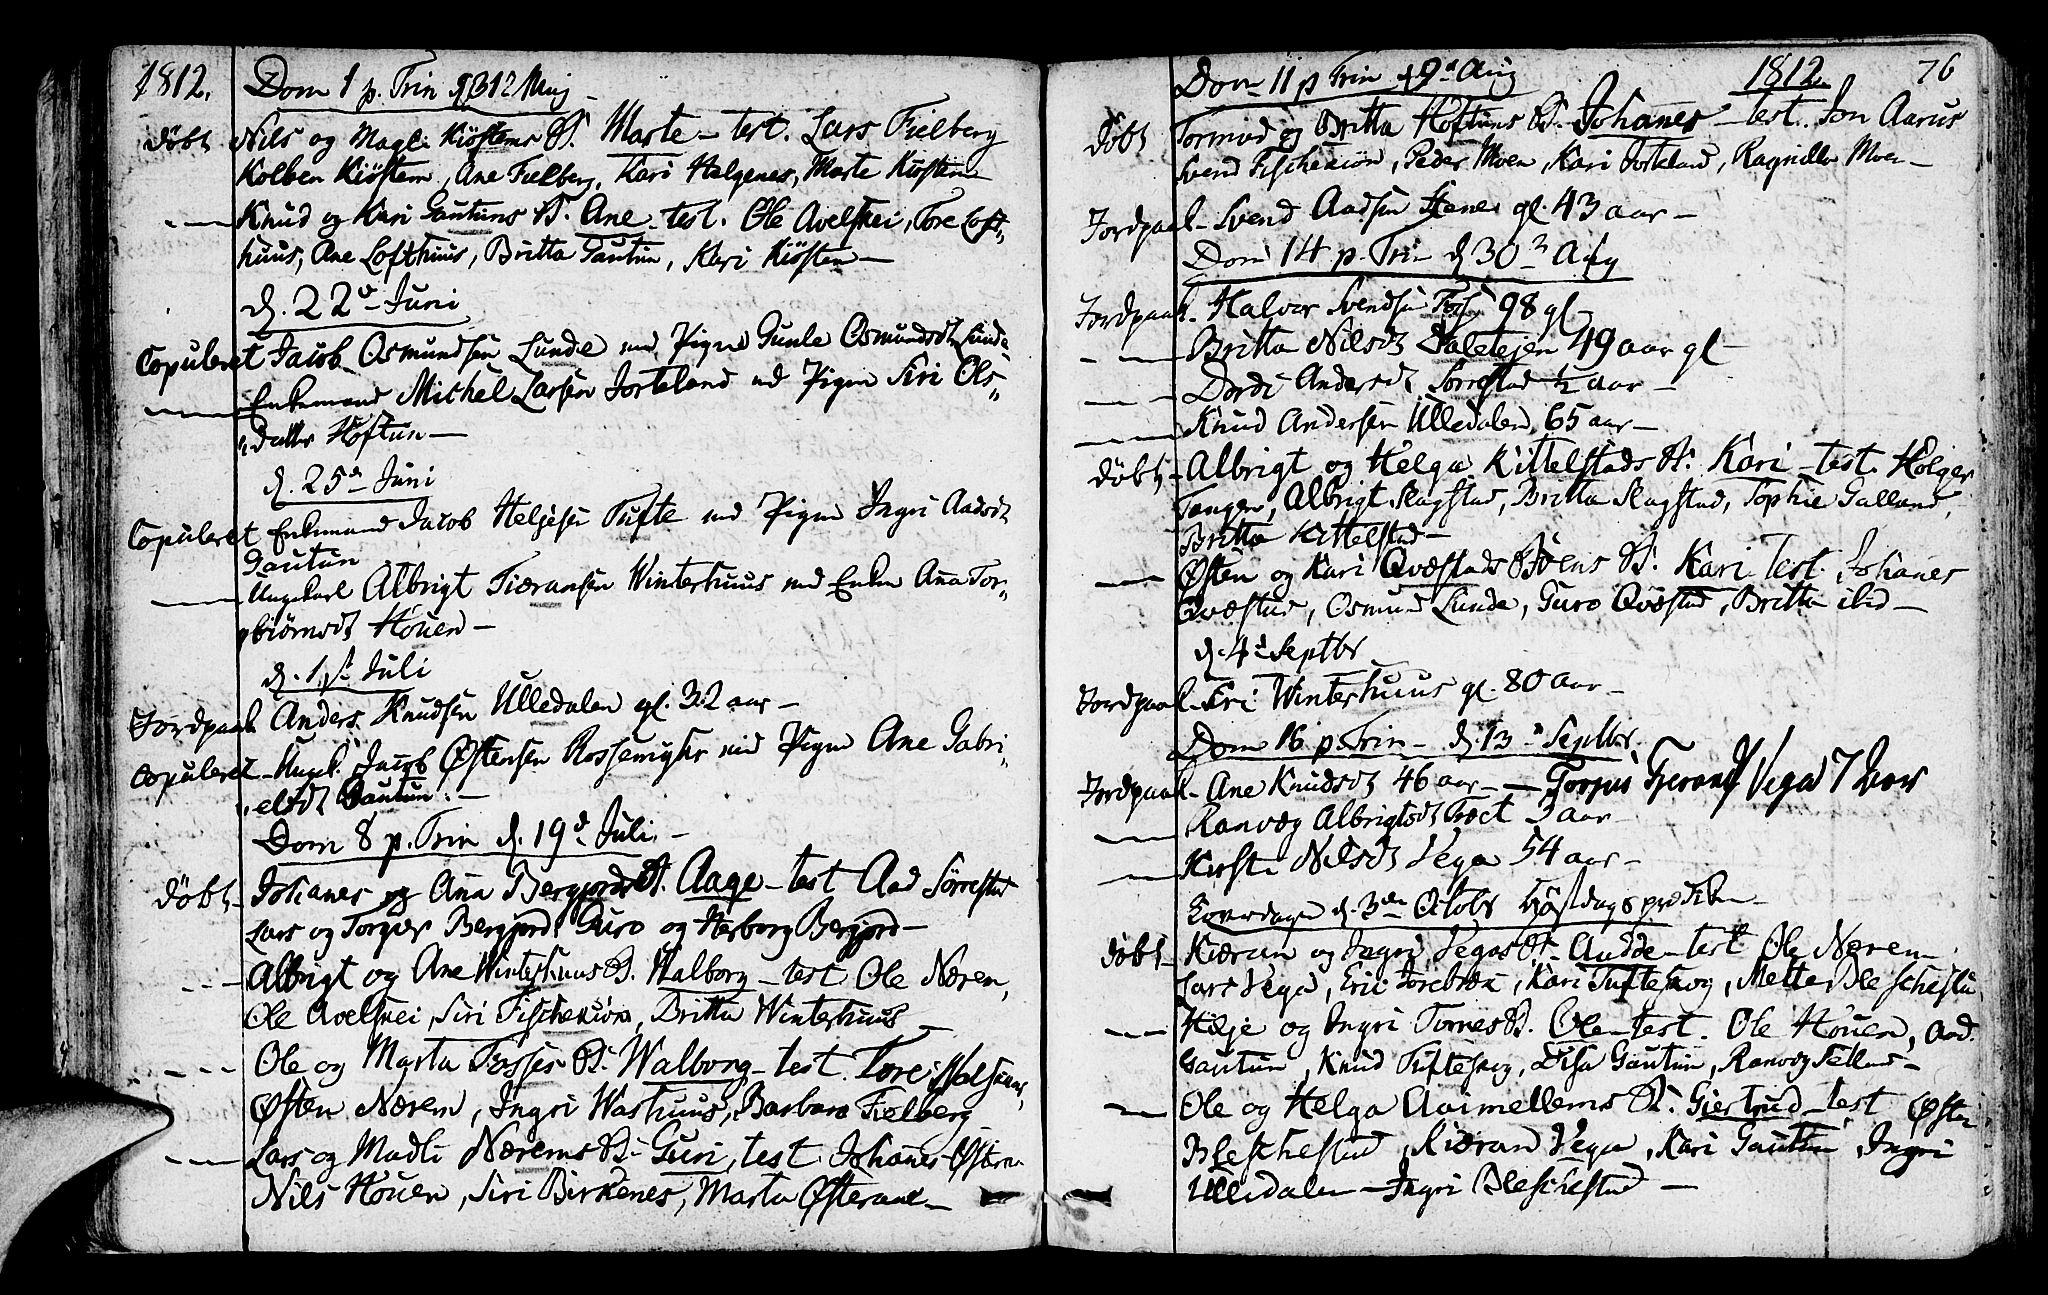 1812.
Dom 1 p. Trin d 31te Maj
döbt Nils og Magl. Kiöstems B. Marte - test. Lars Fielberg
Kolben Kiöstem, Ane Fielberg, Kari Helgenes, Marte Kiöstem
Knud og Kari Gautuns B. Ane - test. Ole Avelsnei, Tore Loft„
huus, Ane Lofthuus, Britta Gautun, Kari Kiöstem -
d. 22d Juni
Copuleret Jacob Osmundsen Lunde med Pigen Gunle Osmundsdt Lunde
Enkemand Michel Larsen Jorteland md Pigen Siri Ols„
„datter Höftun -
d. 25de Juni
Copuleret Enkemand Jacob Heljesen Tufte med Pigen Ingri Aadsdt
Gautun
Ungekarl Albrigt Tiæransen Winterhuus med Enken Ana Tor„
„biörnsdt Höuen -
d. 1st Juli
Jordpaak Anders Knudsen Ulledalen gl. 32 aar -
Copuleret - Ungk. Jacob Østensen Rossemyhr med Pigen Ane Gabri„
„elsdt Gautun. -
Dom 8 p. Trin d. 19d Juli. -
döbt - Johanes og Ana Bergjords B. Aage - test Aad Sörrestad
Lars og Torger Bergjord, Guro og Herborg Bergjord -
Albrigt og Ane Winterhuus B. Walborg - test Ole Nærem,
Ole Avelsnei, Siri Fischekiön, Britta Winterhuus
Ole og Marta Fosses B. Walborg - test. Tore
Østen Nærem, Ingri Washuus, Barbara Fielberg
Lars og Madli Nærems B. Guri, test Johanes Østeraae
Nils Höuen, Siri Birkenes, Marta Østeraae -
Dom 11 p Trin d 9d Aug 1812. 76
döbt Tormod og Britta Höftuns B. Johanes - test. Jon Aarus
Svend Fischekiön, Peder Moen, Kari Jorteland, Ragnilla Moen -
Jordpaak - Svend Aadsen gl. 43 aar -
Dom 14 p. Trin d 30d Aug
Jordpaak. Halvor Svendsen Foss 98 gl
Britta Nilsdt Daletejen 49 aar gl -
Dordi Andersdt Sörrestad ½ aar -
Knud Andersen Ulledalen, 65 aar -
döbt - Albrigt og Helga Kittelstads B. Kari - test. Holger
Tanger, Albrigt Skagstad, Britta Skagstad, Sophie Galland,
Britta Kittelstad -
Østen og Kari Qvæstads B. Kari test. Johanes
Qvæstad, Osmund Lunde, Guro Qvæstad, Britta ibid -
d. 4d Septbr
Jordpaak - Siri Winterhuus gl. 80 aar -
Dom 16 p. Trin - d. 13d Septbr.
Jordpaak - Ane Knudsdt 46 aar - - Torjus Tjerand Vega 7 Aar
Ranvæg Albrigtsdt Træet 3 aar
Kirsti Nilsdt Vega 54 aar -
Löverdagen d. 3die Octobr Höstdagsprediken -
döbt - Kiæran og Ingri Vegas B. Audde - test Ole Nærem
Lars Vega, Eric Torebræk, Kari Tufteskog, Mette Bleschestad,
Helje og Ingri Tornes B. Ole - test. Ole Höuen, Aad.
Gautun, Knud Tufteskog, Lisa Gautun, Ranvæg Selland -
Ole og Helga Avimellems B. Giertrud - test Østen
Bleschestad, Kiæran Vega, Kari Gautun, Ingri
Ulledalen - Ingri Bleschestad -